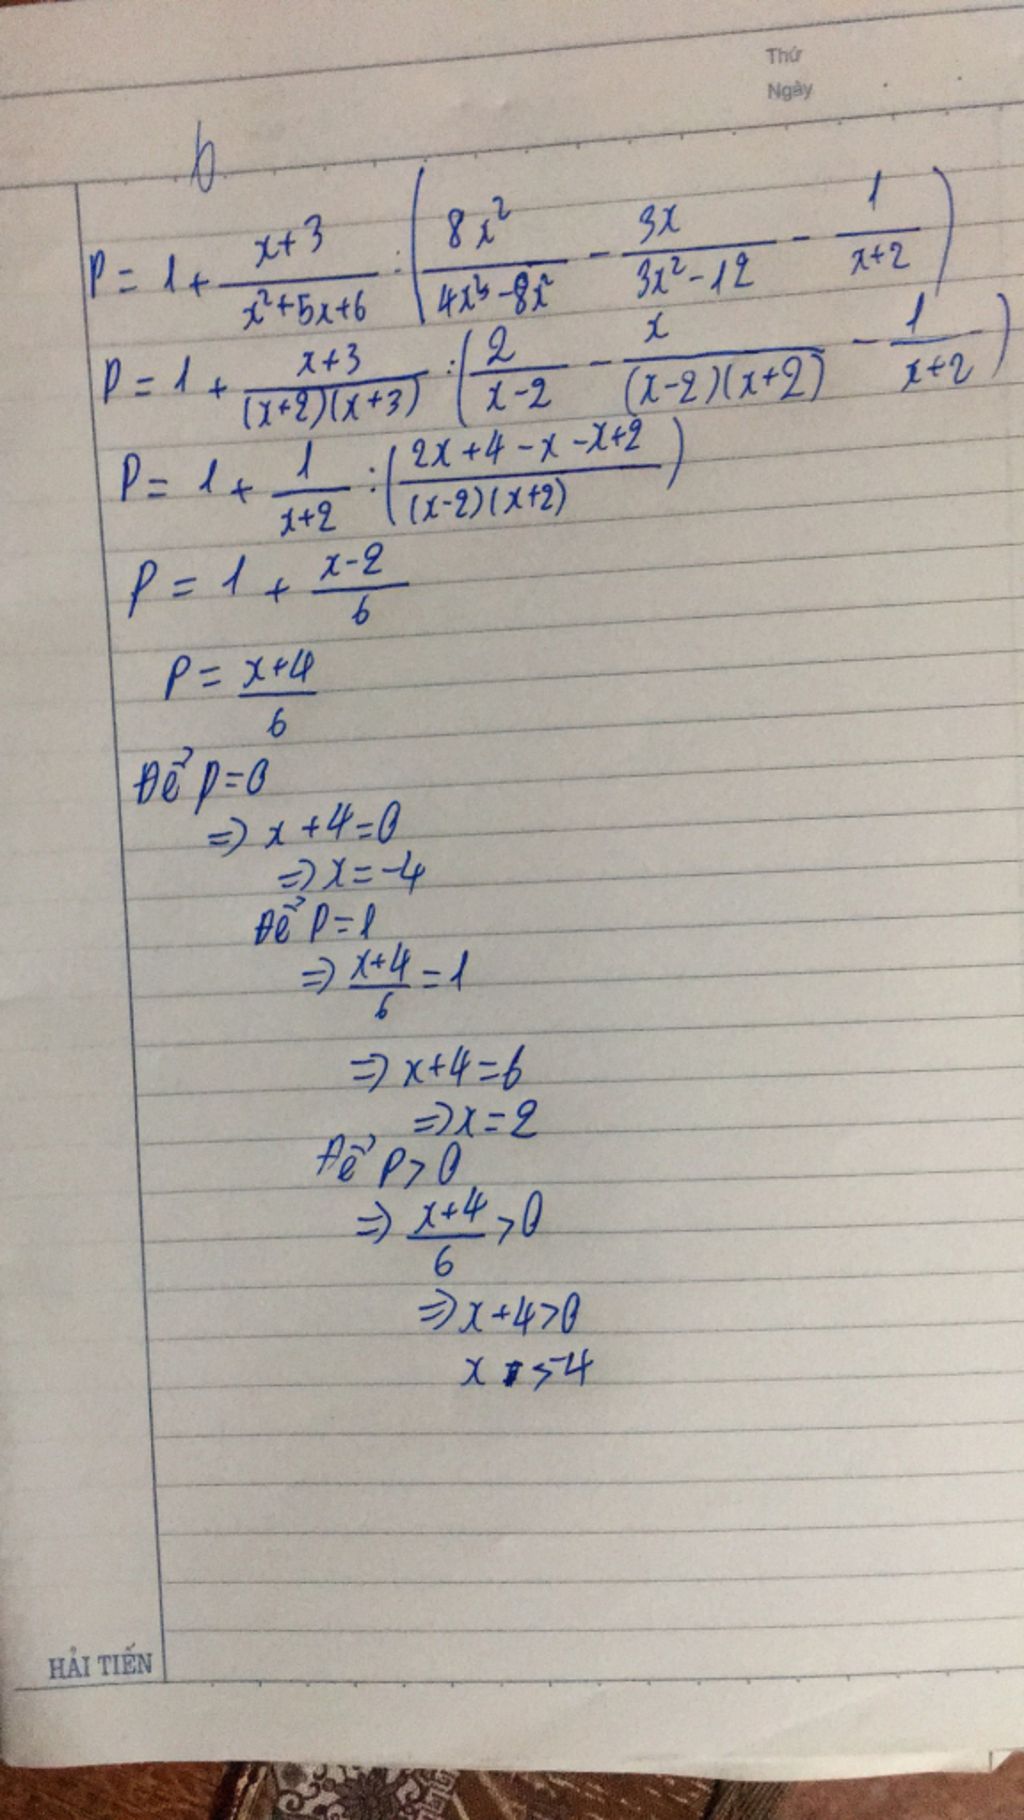 Thứ
Ngày
b
P = 1 + \frac{x+3}{x²+5x+6} : ( \frac{8x²}{4x³-8x²} - \frac{3x}{3x²-12} - \frac{1}{x+2} )
P = 1 + \frac{x+3}{(x+2)(x+3)} : ( \frac{2}{x-2} - \frac{x}{(x-2)(x+2)} - \frac{1}{x+2} )
P = 1 + \frac{1}{x+2} : ( \frac{2x+4-x-x+2}{(x-2)(x+2)} )
P = 1 + \frac{x-2}{6}
P = \frac{x+4}{6}
Để P=0
=> x+4=0
=> x=-4
Để P=1
=> \frac{x+4}{6} = 1
=> x+4=6
=> x=2
Để P>0
=> \frac{x+4}{6} >0
=> x+4>0
x >-4
HẢI TIẾN